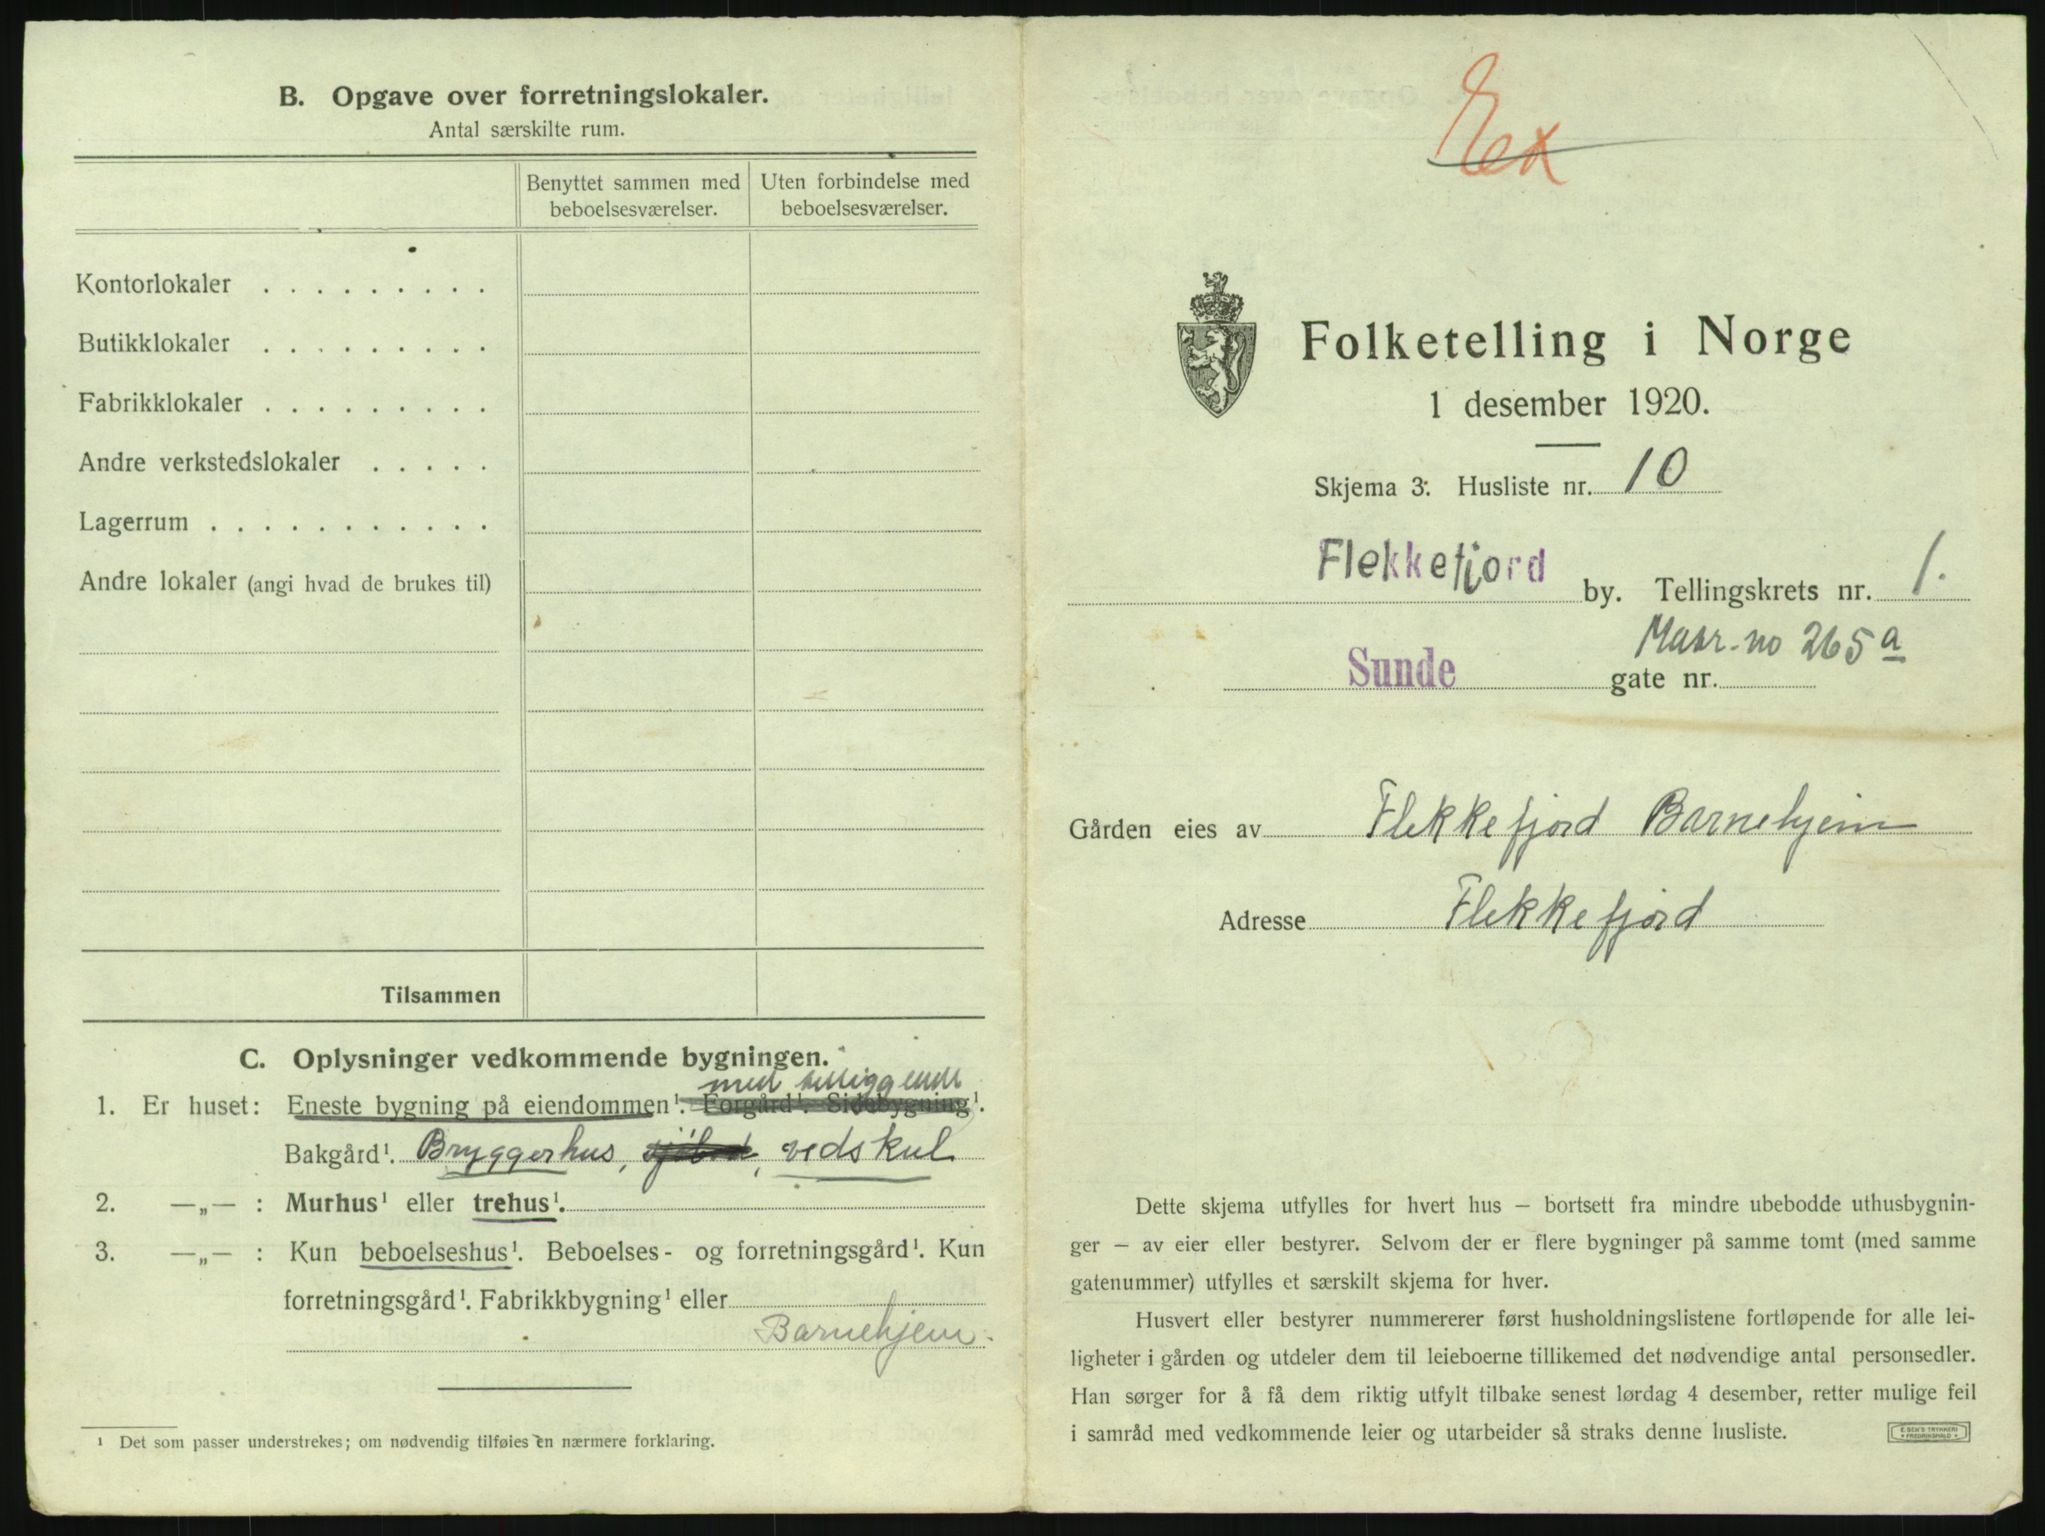 B. Opgave over forretningslokaler.
Antal særskilte rum.
Benyttet sammen med beboelsesværelser.
Uten forbindelse med beboelsesværelser.
Kontorlokaler . . . . . . . . .
Butikklokaler . . . . . . . . .
Fabrikklokaler . . . . . . . . .
Andre verkstedslokaler . . . . .
Lagerrum . . . . . . . . . . .
Andre lokaler (angi hvad de brukes til)
Tilsammen
C. Oplysninger vedkommende bygningen.
med tilliggende
1. Er huset: Eneste bygning på eiendommen¹. Forgård¹. Sidebygning¹.
Bakgård¹. Bryggerhus, sjöbod, vedskul
2. —„— : Murhus¹ eller trehus¹.
3. —„— : Kun beboelseshus¹. Beboelses- og forretningsgård¹. Kun
forretningsgård¹. Fabrikkbygning¹ eller
Barnehjem.
¹ Det som passer understrekes; om nødvendig tilføies en nærmere forklaring.
Folketelling i Norge
1 desember 1920.
Skjema 3. Husliste nr. 10
Flekkefjord by. Tellingskrets nr. 1.
Matr. no 265 a
Sunde gate nr.
Gården eies av Flekkefjord Barnehjem
Adresse Flekkefjord
Dette skjema utfylles for hvert hus — bortsett fra mindre ubebodde uthusbygnin-
ger — av eier eller bestyrer. Selvom der er flere bygninger på samme tomt (med samme
gatenummer) utfylles et særskilt skjema for hver.
Husvert eller bestyrer nummererer først husholdningslistene fortløpende for alle lei-
ligheter i gården og utdeler dem til leieboerne tillikemed det nødvendige antal personsedler.
Han sørger for å få dem riktig utfylt tilbake senest lørdag 4 desember, retter mulige feil
i samråd med vedkommende leier og utarbeider så straks denne husliste.
E. SEM'S TRYKKERI
FREDRIKSHALD